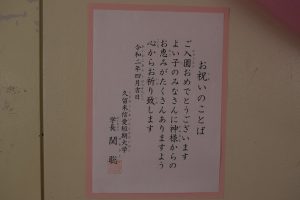 お祝いのことば
ご入園おめでとうございます
よい子のみなさんに神様からの
お恵みがたくさんありますよう
心からお祈り致します
令和二年四月吉日
久留米信愛短期大学
学長 関 聡